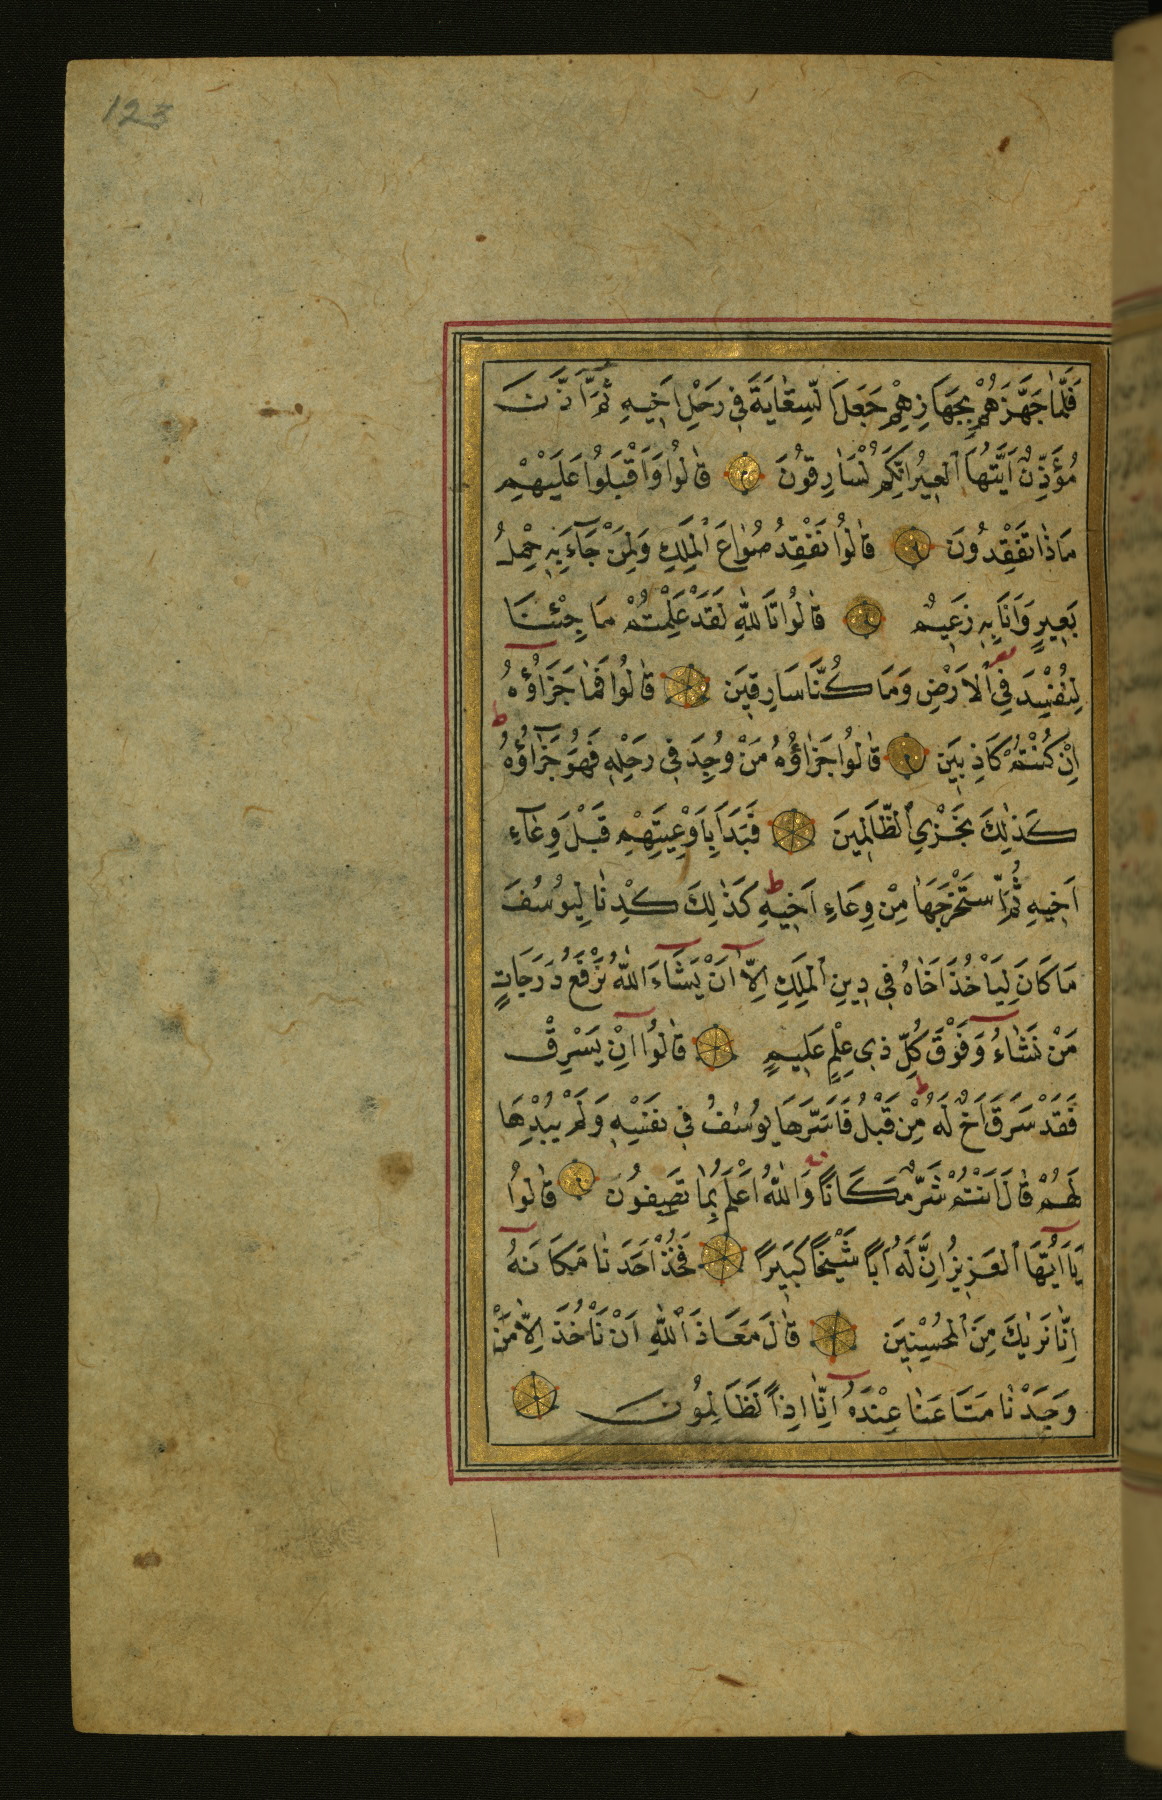 123
فَلَمَّا جَهَّزَهُمْ بِجَهَازِهِمْ جَعَلَ السِّقَايَةَ فِي رَحْلِ اَخِيهِ ثُمَّ اَذَّنَ
مُؤَذِّنٌ اَيَّتُهَا الْعِيرُ اِنَّكُمْ لَسَارِقُونَ قَالُوا وَاَقْبَلُوا عَلَيْهِمْ
مَاذَا تَفْقِدُونَ قَالُوا نَفْقِدُ صُوَاعَ الْمَلِكِ وَلِمَنْ جَآءَ بِهِ حِمْلُ
بَعِيرٍ وَاَنَا بِهِ زَعِيمٌ قَالُوا تَاللّٰهِ لَقَدْ عَلِمْتُمْ مَا جِئْنَا
لِنُفْسِدَ فِي الْاَرْضِ وَمَا كُنَّا سَارِقِينَ قَالُوا فَمَا جَزَآؤُهُ
اِنْ كُنْتُمْ كَاذِبِينَ قَالُوا جَزَآؤُهُ مَنْ وُجِدَ فِي رَحْلِهِ فَهُوَ جَزَآؤُهُ
كَذٰلِكَ نَجْزِي الظَّالِمِينَ فَبَدَاَ بِاَوْعِيَتِهِمْ قَبْلَ وِعَآءِ
اَخِيهِ ثُمَّ اسْتَخْرَجَهَا مِنْ وِعَاءِ اَخِيهِ كَذٰلِكَ كِدْنَا لِيُوسُفَ
مَا كَانَ لِيَاْخُذَ اَخَاهُ فِي دِينِ الْمَلِكِ اِلَّآ اَنْ يَشَآءَ اللّٰهُ نَرْفَعُ دَرَجَاتٍ
مَنْ نَشَآءُ وَفَوْقَ كُلِّ ذِي عِلْمٍ عَلِيمٌ قَالُوٓا اِنْ يَسْرِقْ
فَقَدْ سَرَقَ اَخٌ لَهُ مِنْ قَبْلُ فَاَسَرَّهَا يُوسُفُ فِي نَفْسِهِ وَلَمْ يُبْدِهَا
لَهُمْ قَالَ اَنْتُمْ شَرٌّ مَكَانًا وَاللّٰهُ اَعْلَمُ بِمَا تَصِفُونَ قَالُوا
يَآ اَيُّهَا الْعَزِيزُ اِنَّ لَهُ اَبًا شَيْخًا كَبِيرًا فَخُذْ اَحَدَنَا مَكَانَهُ
اِنَّا نَرٰيكَ مِنَ الْمُحْسِنِينَ قَالَ مَعَاذَ اللّٰهِ اَنْ نَاْخُذَ اِلَّا مَنْ
وَجَدْنَا مَتَاعَنَا عِنْدَهُ اِنَّآ اِذًا لَظَالِمُونَ